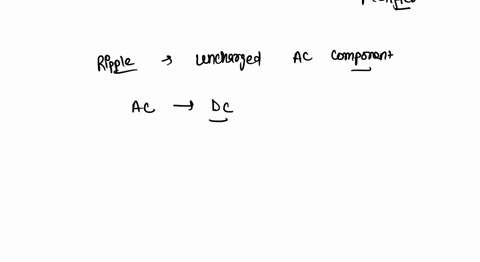 Ripple → uncharged AC component
AC → DC